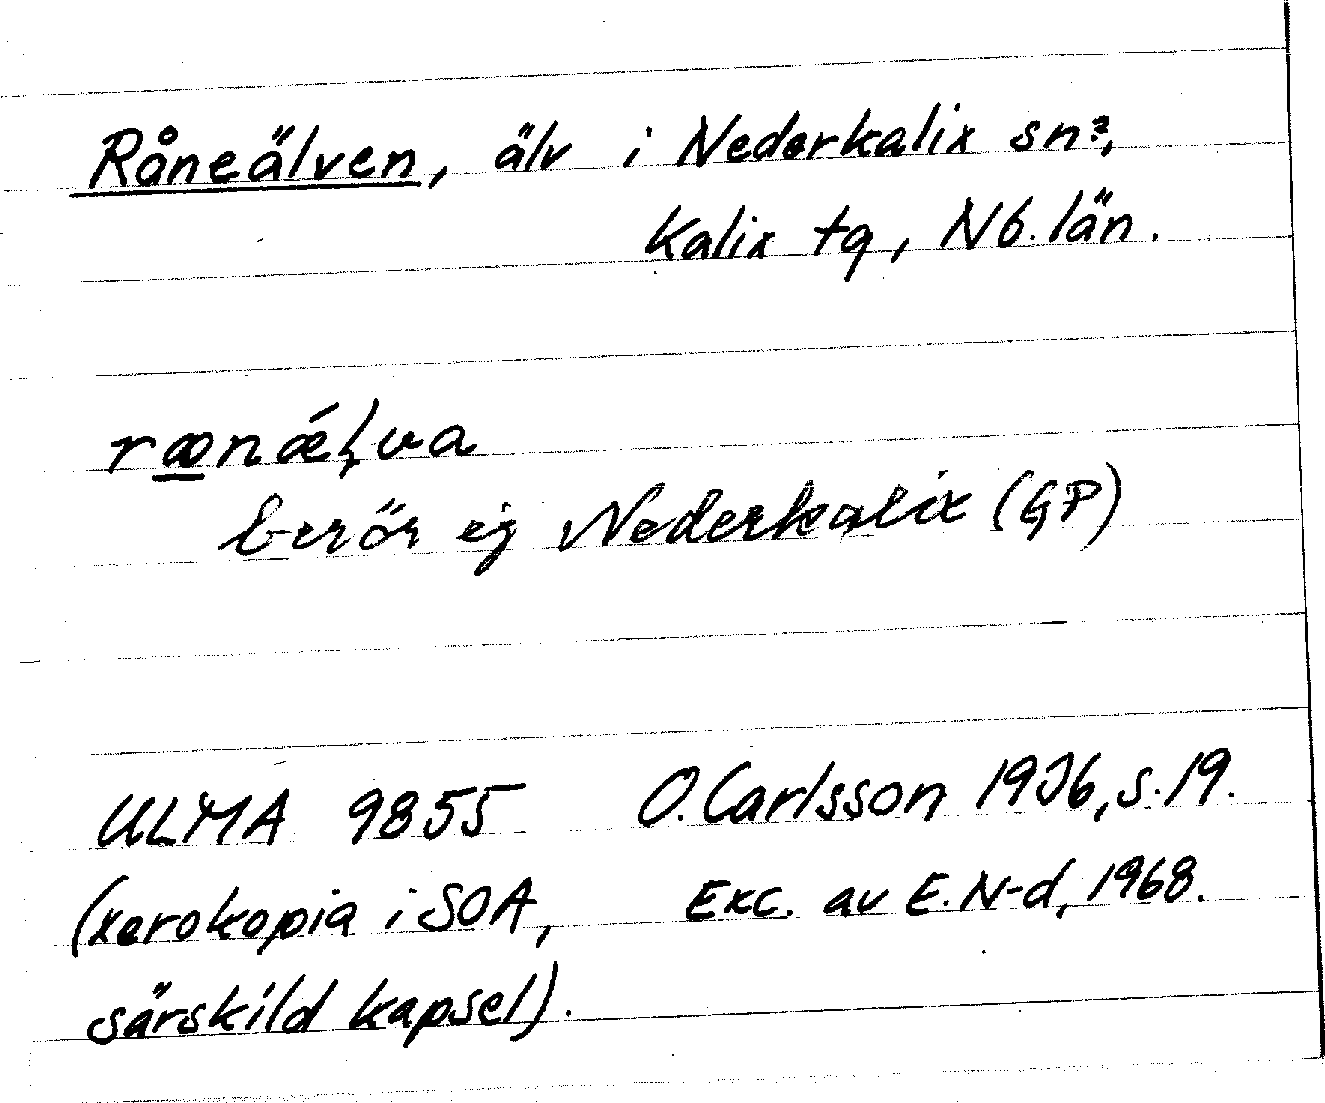 Råneälven, älv i Nederkalix sn?,
Kalix tg, Nb. län.
rænǽḷva
berör ej Nederkalix (GP)
ULMA 9855 O. Carlsson 1936, s. 19.
(xerokopia i SOA, Exc. av E. N-d, 1968.
särskild kapsel).